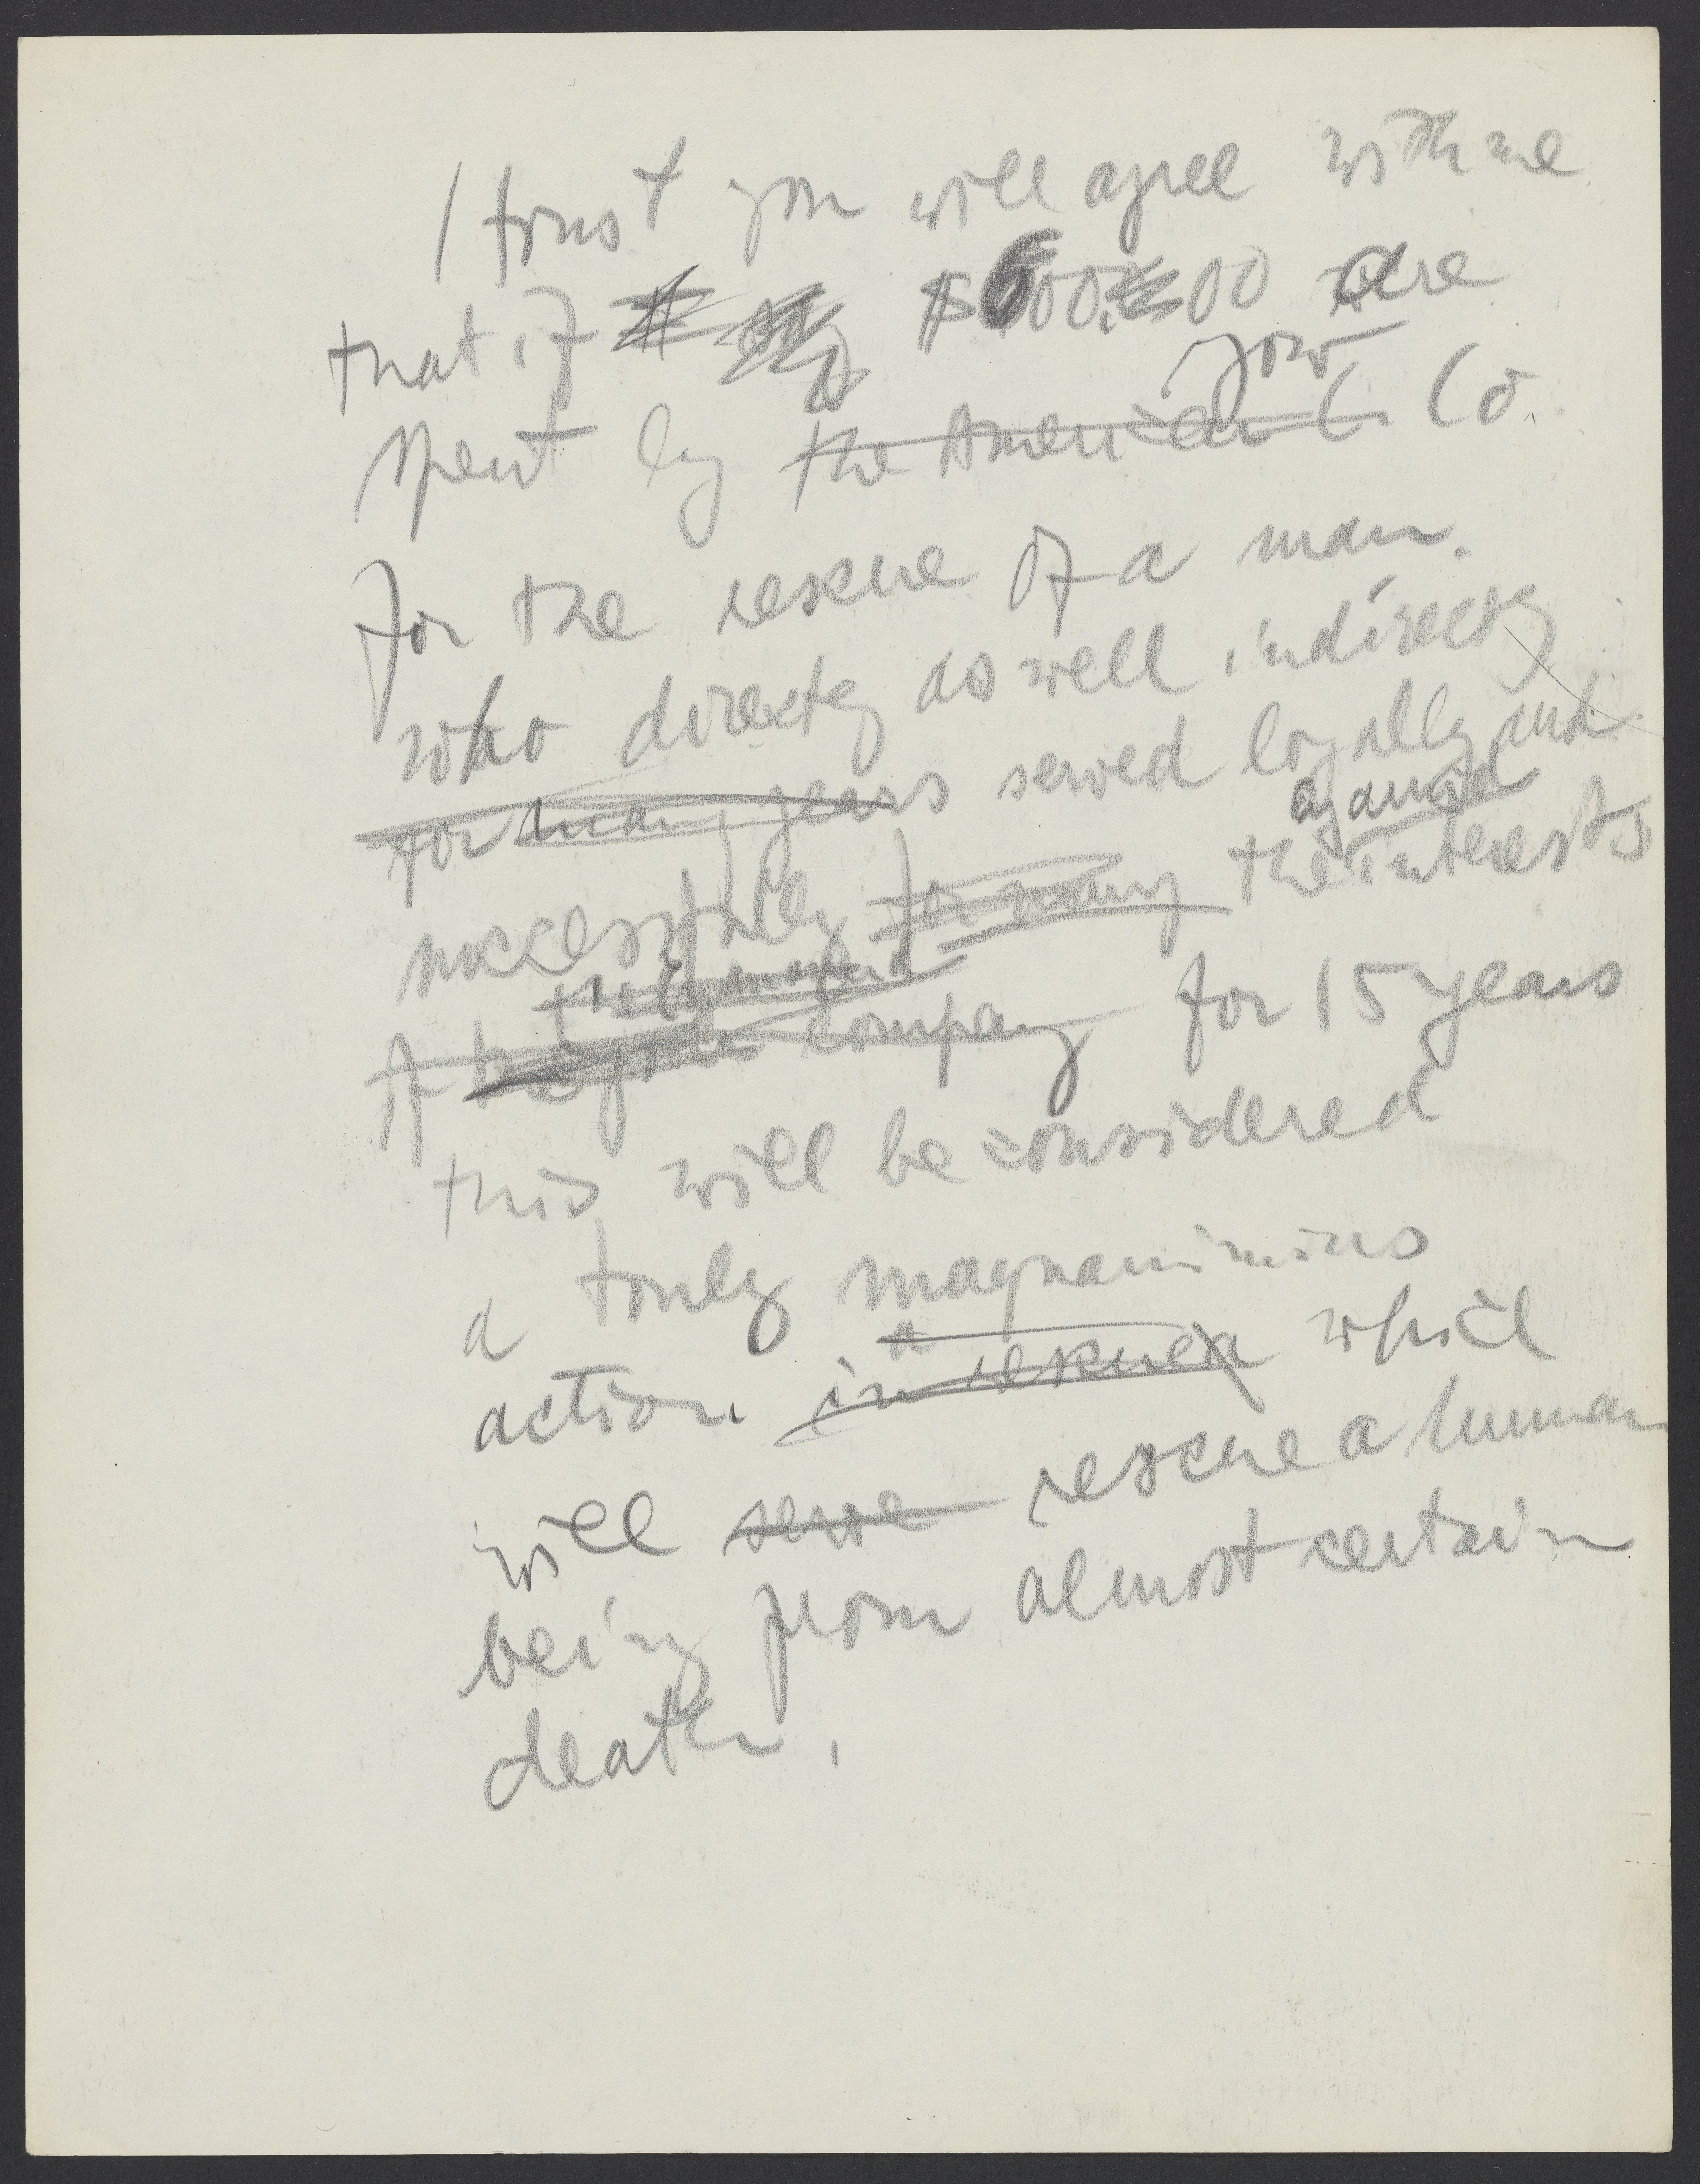 I trust you will agree with me
that if $600.00 are
your
spent by the American C. Co.
for the rescue of a man.
who directly as well indirectly
for many years served loyally and
successfully for many the interests
of the company for 15 years
this will be considered
a truly magnanimus
action in rescuea which
will serve rescue a human
being from almost certain
death.